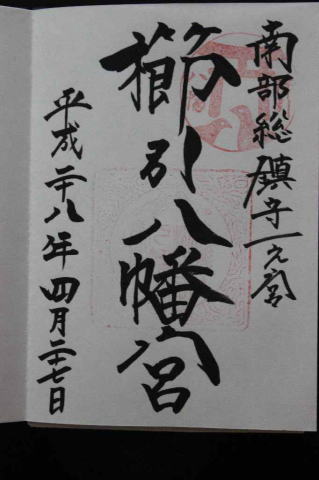 南部総鎮守一之宮
櫛引八幡宮
平成二十八年四月二十七日